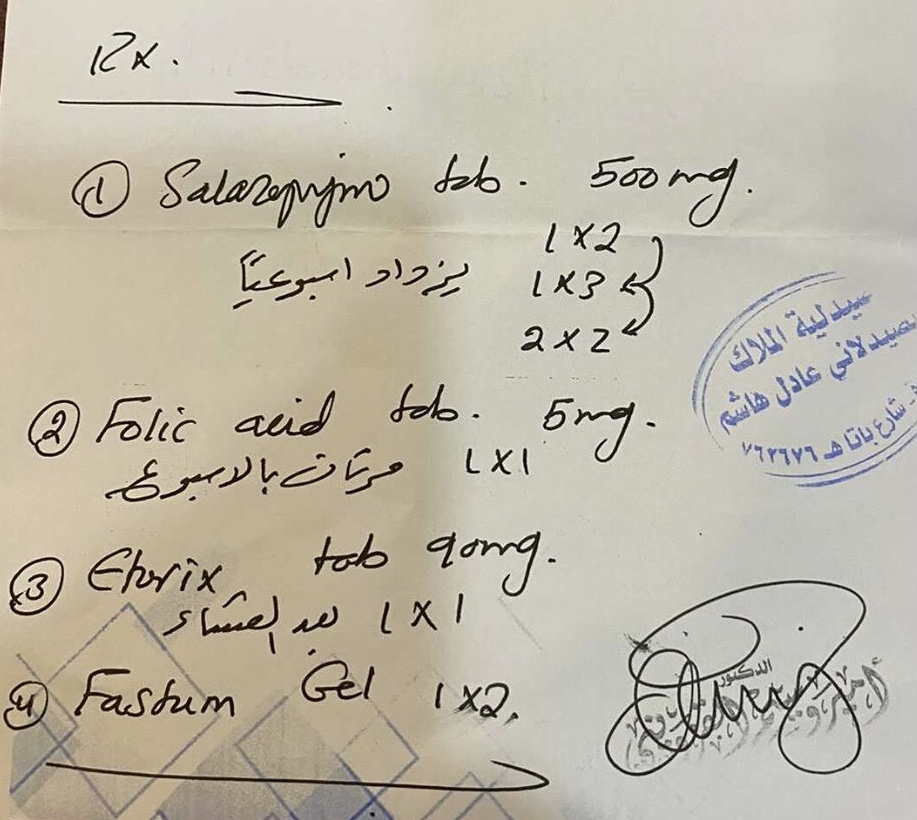 Rx.
① Salazopyrin tab. 500mg.
1x2
يزداد اسبوعياً 1x3
2x2
② Folic acid tab. 5mg.
1x1 مرتان بالاسبوع
③ Etorix tab 90mg.
1x1 بعد العشاء
④ Fastum Gel 1x2.
صيدلية الملاك
الصيدلاني عادل هاشم
شارع باتا هـ ٧٦٢٦٧٦
الدكتور